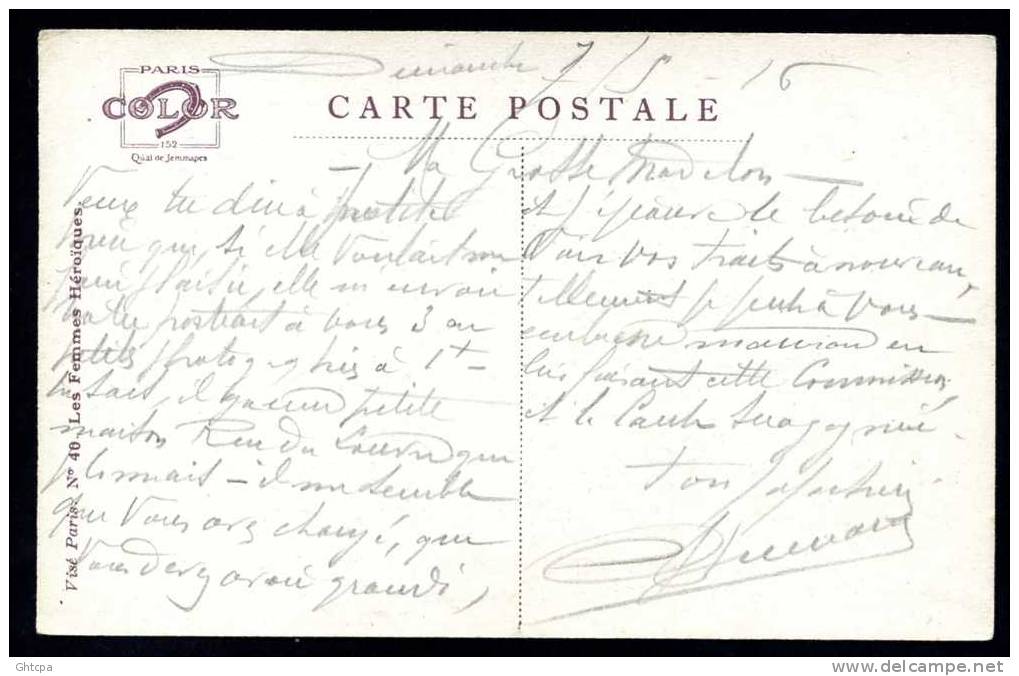 PARIS
COLOR
152
Quai de Jemmapes
Dimanche 7/5 - 16
CARTE POSTALE
Ma Grosse Madelon
Veux tu dire à petite
que, si elle voulait me
faire plaisir, elle m'enverrait
votre portrait à vous 3 en
petites photographies à 1f
tu sais, il y a une petite
maison Rue du Louvre qui
- il me semble
que vous avez changé, que
Vous devez avoir grandi,
et j'éprouve le besoin de
Voir vos traits à nouveau
tellement je pense à Vous
embrasse maman en
lui faisant cette Commission
et le
Ton
Visé Paris. Nº 40. Les Femmes Héroïques.
Ghtcpa
www.delcampe.net